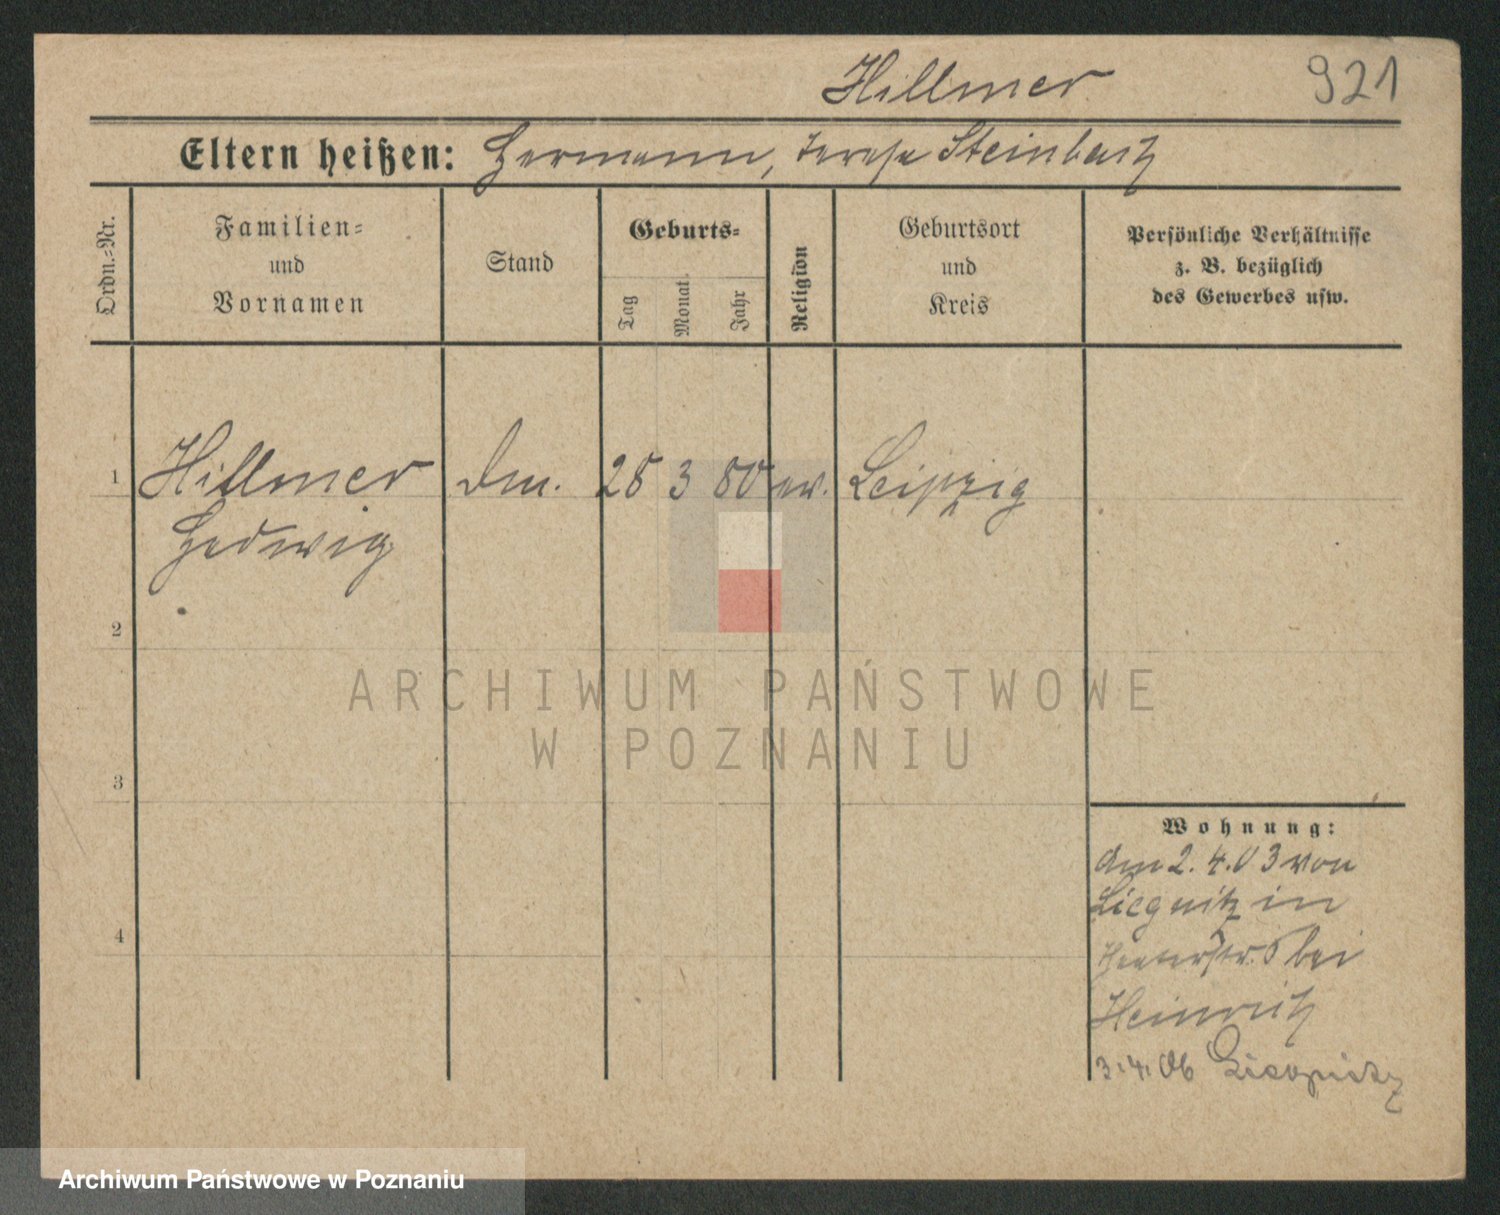 Hillmer 921
Eltern heißen: Hermann, Terese Steinbach
Ordn.-Nr.
Familien-
und
Vornamen
Stand
Geburts-
Tag
Monat
Jahr
Religion
Geburtsort
und
Kreis
Persönliche Verhältnisse
z. B. bezüglich
des Gewerbes usw.
1 Hillmer 28 3 80 ev. Leipzig
Hedwig
2
3
4
ARCHIWUM PAŃSTWOWE
W POZNANIU
Wohnung:
am 2. 4. 03 von
Liegnitz in
bei
3.4.06
Archiwum Państwowe w Poznaniu